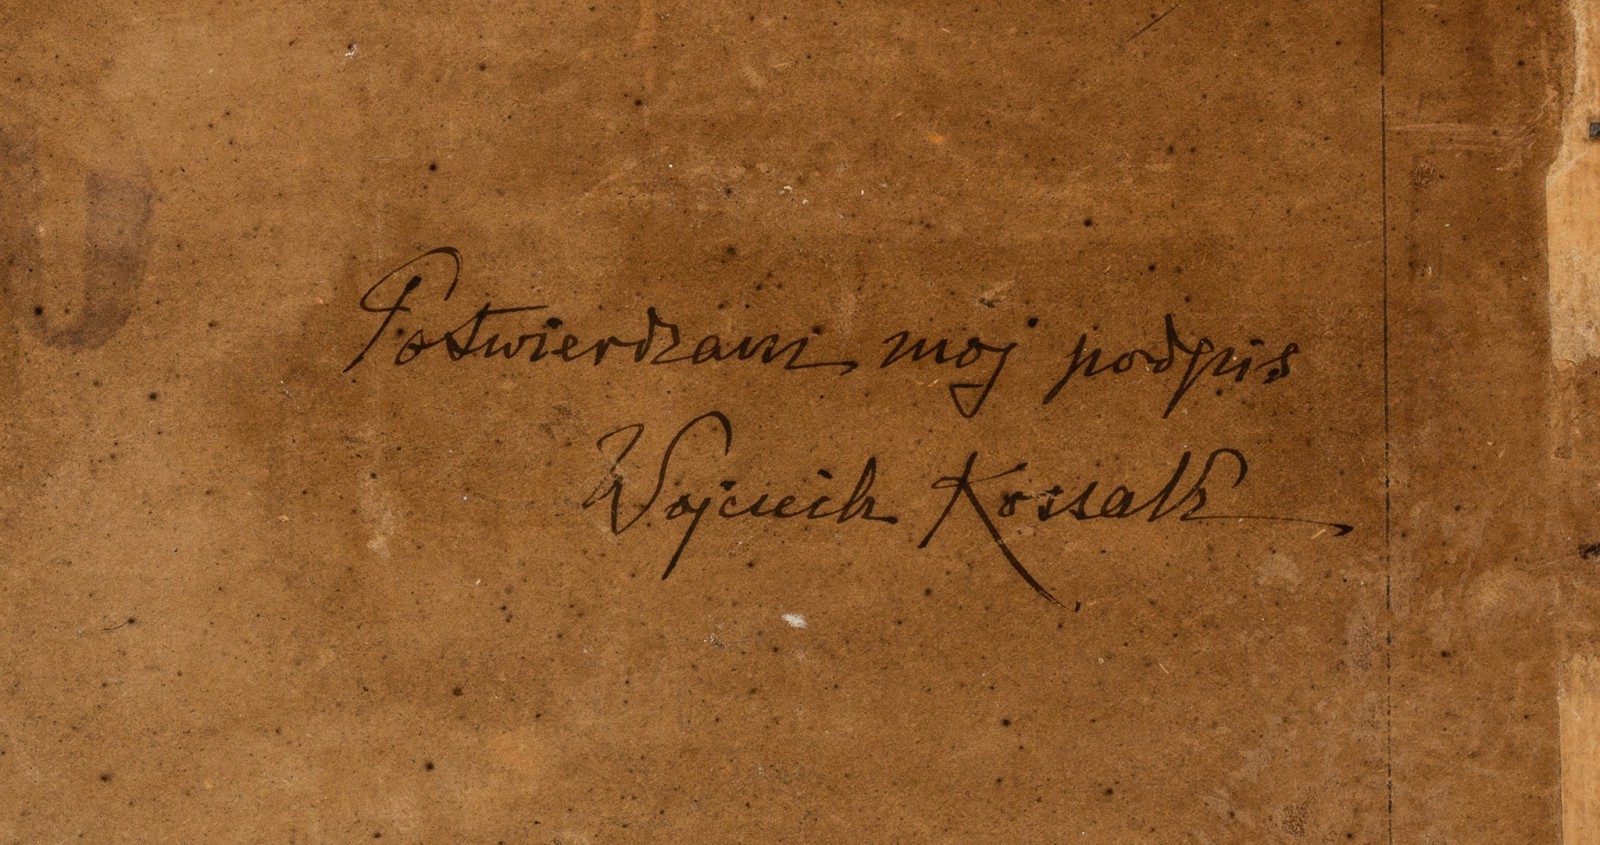 Potwierdzam mój podpis
Wojciech Kossak